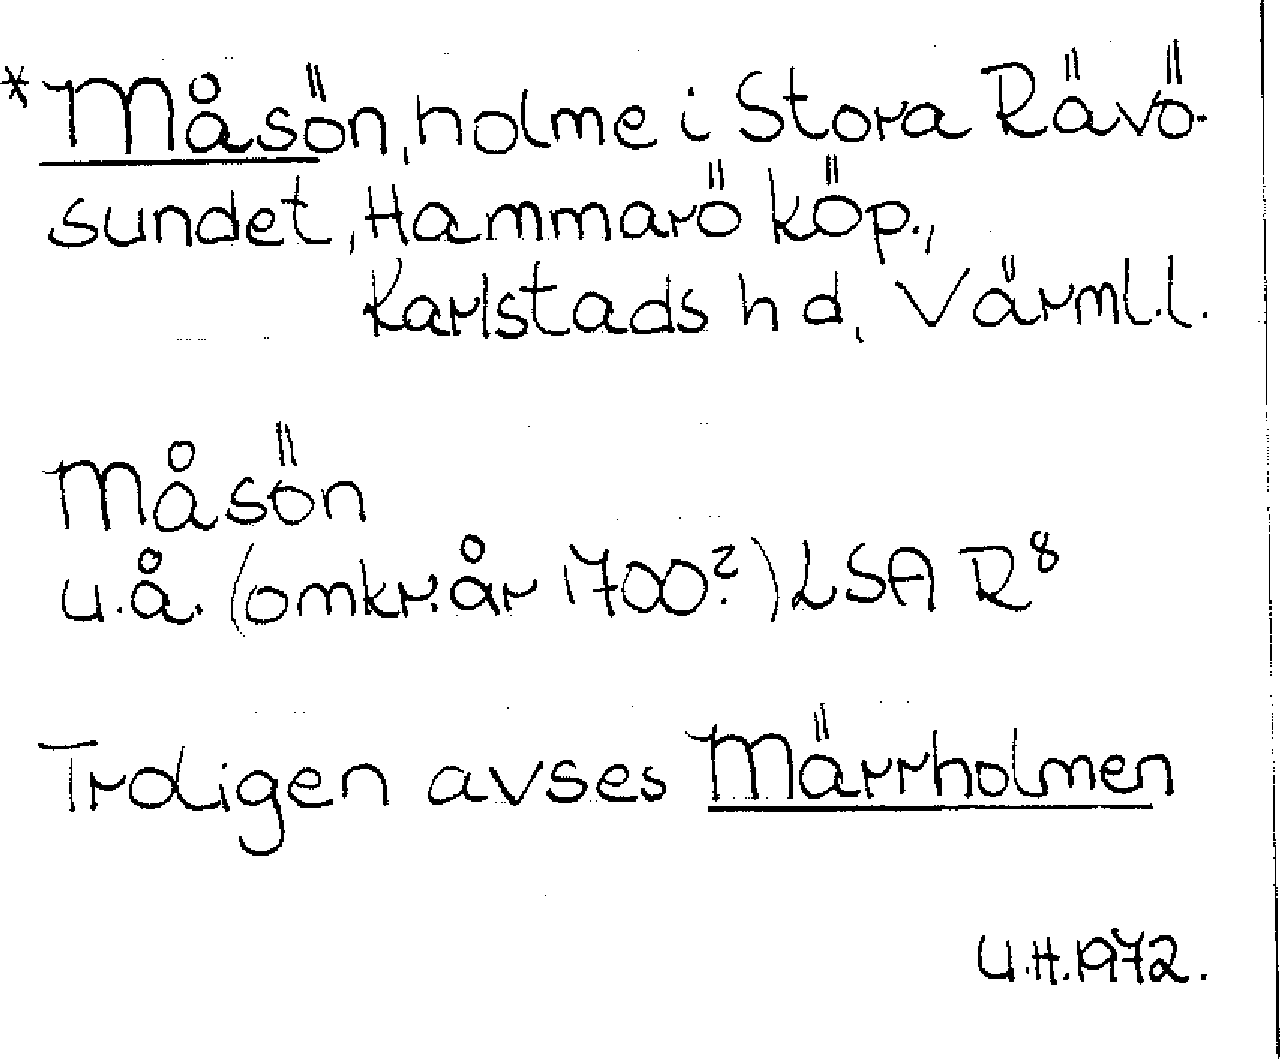 *Måsön, holme i Stora Rävö-
sundet, Hammarö köp.,
Karlstads hd, Värml.l.
Måsön
u.å. (omkr. år 1700?) LSA R⁸
Troligen avses Märrholmen
U.H. 1972.